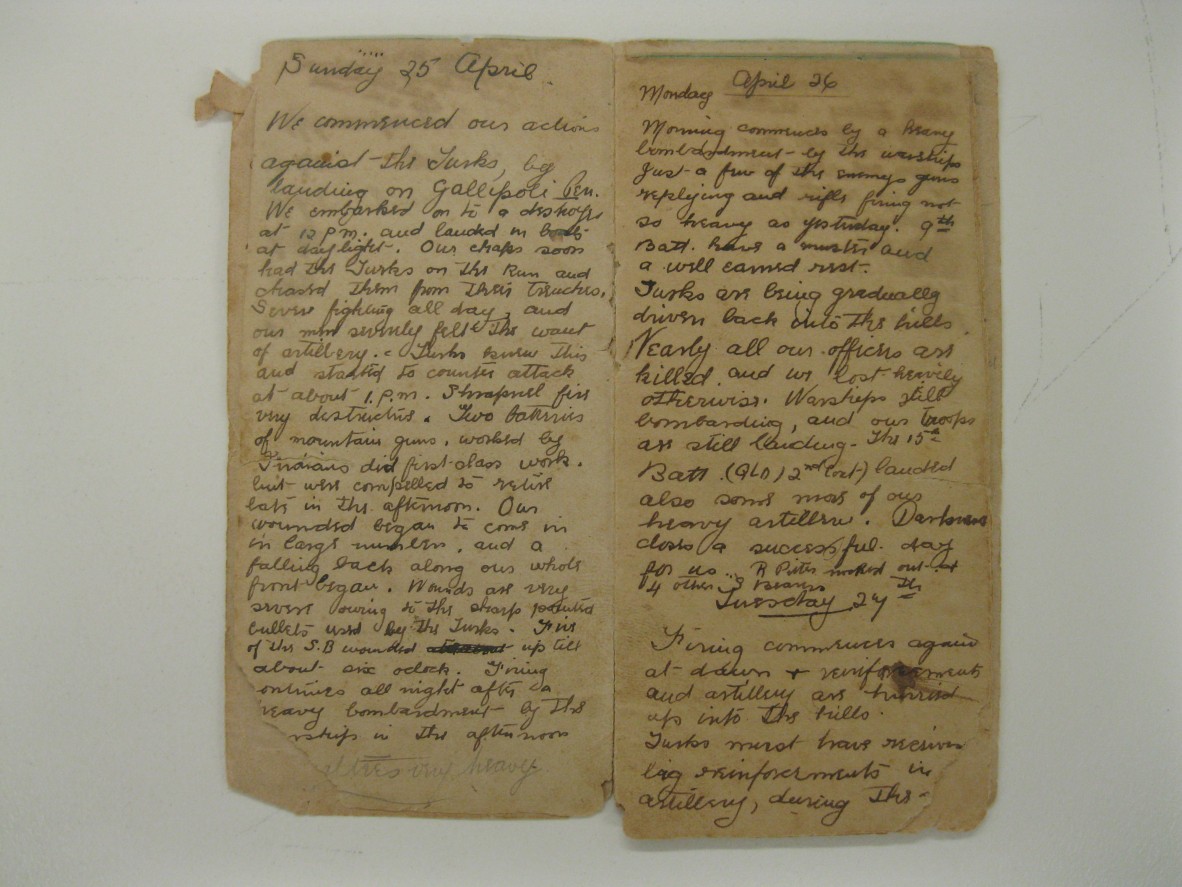 Sunday 25 April.
We commenced our actions
against the Turks, by
landing on Gallipoli Pen.
We embarked on to a destroyer
at 12 P.m. and landed in boats
at daylight. Our chaps soon
had the Turks on the Run and
chased them from their trenches.
Severe fighting all day, and
our men severely felt the want
of artillery. Turks knew this
and started to counter attack
at about 1.P.m. Shrapnel fire
very destructive. Two batteries
of mountain guns, worked by
Indians did first-class work.
but were compelled to retire
late in the afternoon. Our
wounded began to come in
in large numbers, and a
falling back along our whole
front began. Wounds are very
severe owing to the sharp pointed
bullets used by the Turks. Five
of the S.B wounded up till
about six oclock. Firing
ontinues all night after a
heavy bombardment by the
rships in the afternoon
very heavy.
Monday April 26
Morning commences by a heavy
bombardment by the warships
Just a few of the enemys guns
replying and rifle firing not
so heavy as yesterday. 9th
Batt. have a muster and
a well earned rest.
Turks are being gradually
driven back into the hills.
Nearly all our officers are
killed, and we lost heavely
otherwise. Warships still
bombarding, and our troops
are still landing. The 15th
Batt. (QLD) 2nd Cont) landed
also some more of our
heavy artillery. Darkness
closes a successful. day
for us. R Pitts knocked out &
4 other S Bearers
Tuesday 27th
Firing commences again
at dawn + reinforcements
and artillery are hurried
up into the hills.
Turks must have receiv
big reinforcements in
artillery, during the